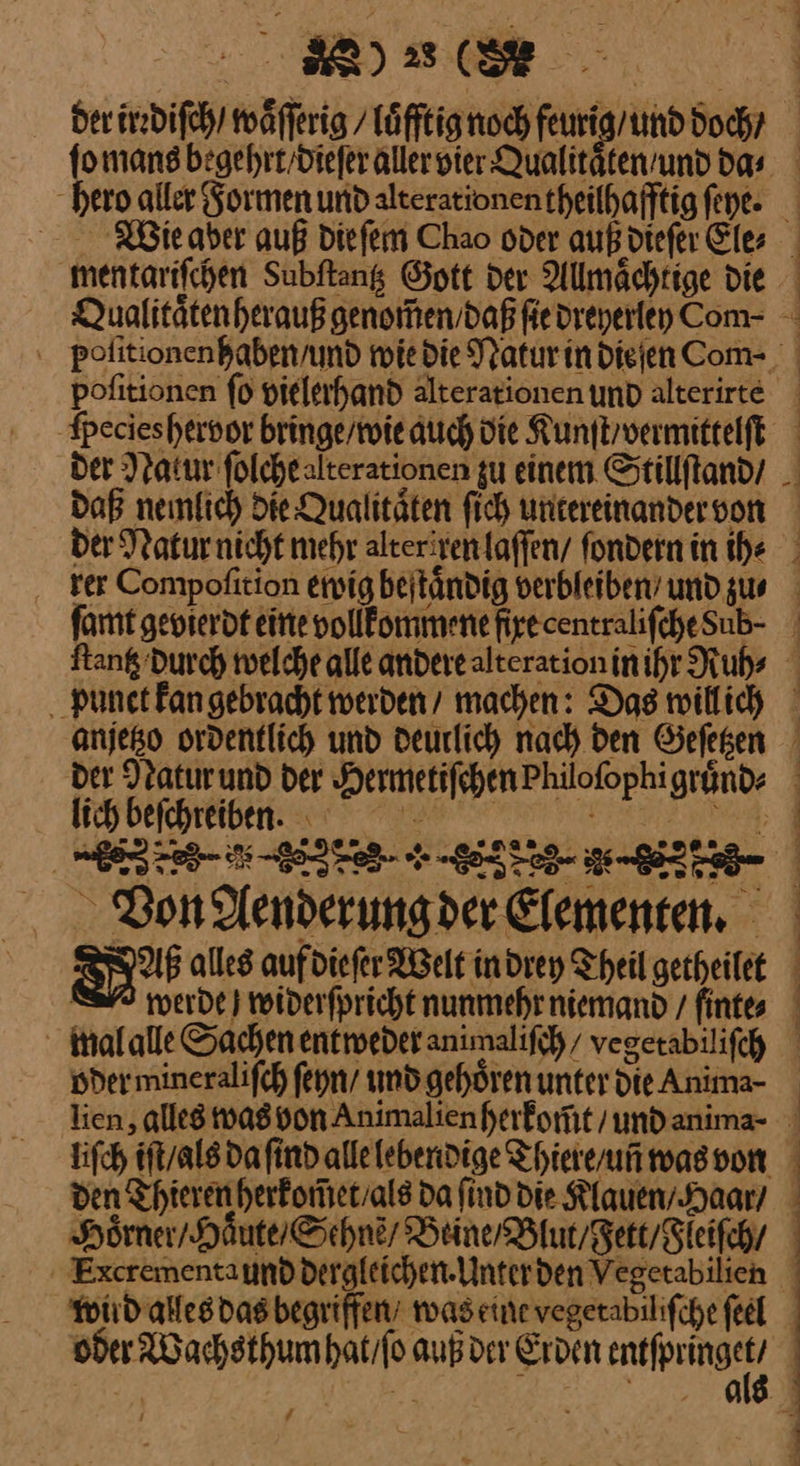 ) 28 (
der irꝛdiſch/ waͤſſerig / luͤfftig noch feurig/ und doch/
ſo mans begehrt/ dieſer aller vier Qualitaͤten/ und da⸗
hero aller Formen und alterationen theilhafftig ſeye.
Wie aber auß dieſem Chao oder auß dieſer Ele⸗
mentariſchen Subſtantz Gott der Allmaͤchtige die
Qualitaͤten herauß genom̃en/ daß ſie dreyerley Com-
poſitionen haben/ und wie die Natur in dieſen Com-
poſitionen ſo vielerhand alterationen und alterirte
ſpecies hervor bringe/ wie auch die Kunſt/ vermittelſt
der Natur ſolche alterationen zu einem Stillſtand/
daß nemlich die Qualitaͤten ſich untereinander von
der Natur nicht mehr alteriren laſſen/ ſondern in ih⸗
rer Compoſition ewig beſtaͤndig verbleiben/ und zu⸗
ſamt gevierdt eine vollkommene fixe centraliſche Sub-
ſtantz durch welche alle andere alteration in ihr Ruh⸗
punct kan gebracht werden / machen: Das will ich
anjetzo ordentlich und deutlich nach den Geſetzen
der Natur und der Hermetiſchen Philoſophi gruͤnd⸗
lich beſchreiben.
Von Aenderung der Elementen.
DAß alles auf dieſer Welt in drey Theil getheilet
werde) widerſpricht nunmehr niemand / ſinte⸗
mal alle Sachen entweder animaliſch / vegetabiliſch
oder mineraliſch ſeyn/ und gehoͤren unter die Anima-
lien, alles was von Animalien herkom̃t / und anima-
liſch iſt/ als da ſind alle lebendige Thiere/ uñ was von
den Thieren herkom̃et/ als da ſind die Klauen/ Haar/
Hoͤrner/ Haͤute/ Sehnẽ/ Beine/ Blut/ Fett/ Fleiſch/
Excrementa und dergleichen. Unter den Vegetabilien
wird alles das begriffen/ was eine vegetabiliſche ſeel
oder Wachsthum hat/ ſo auß der Erden entſpringet/
als